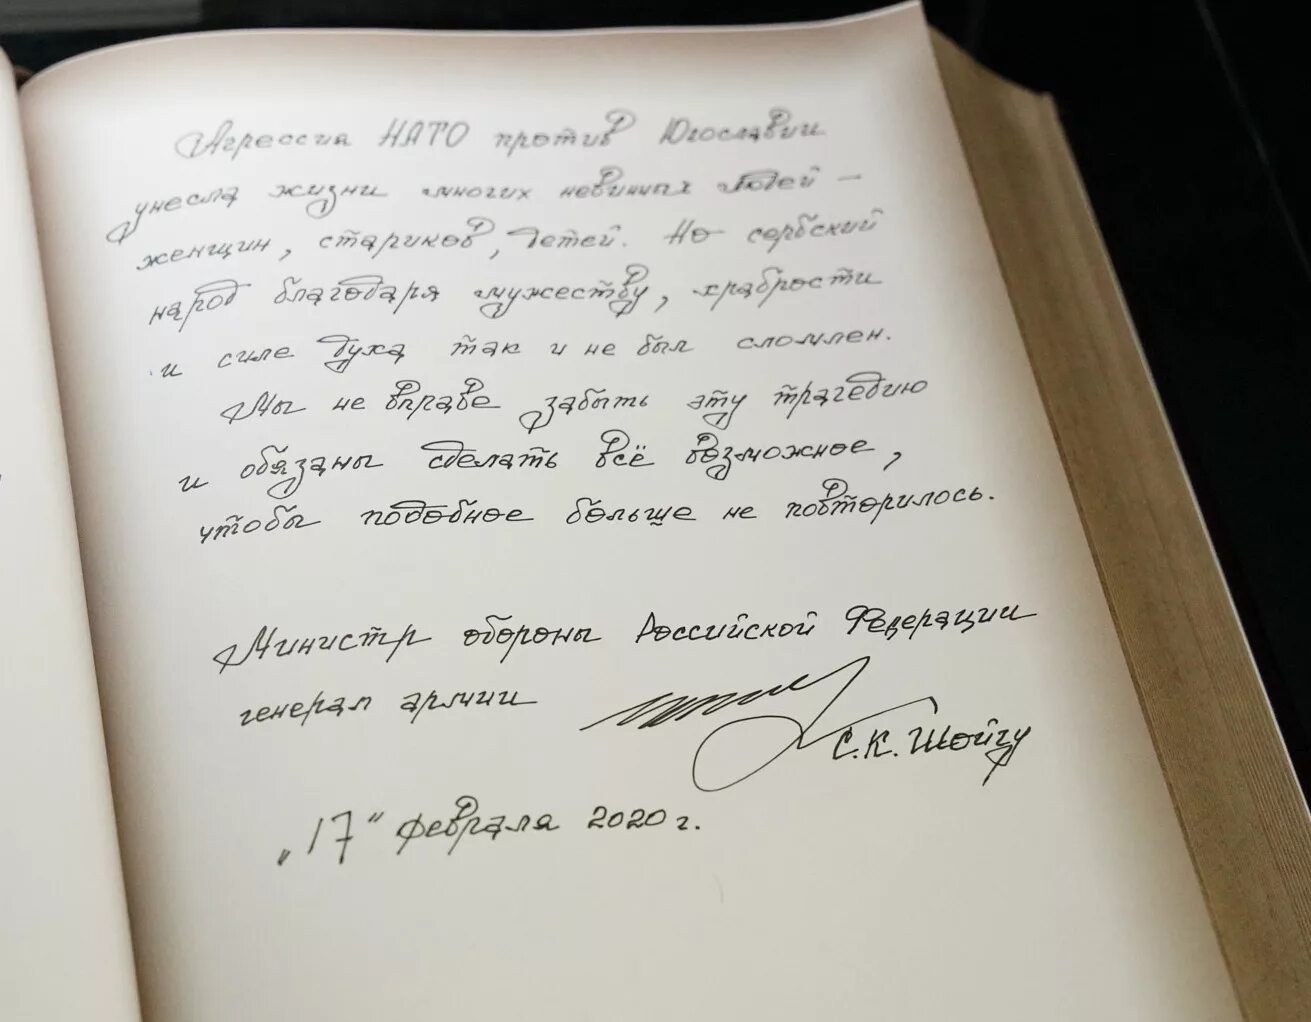 Агрессия НАТО против Югославии
унесла жизни многих невинных людей –
женщин, стариков, детей. Но сербский
народ благодаря мужеству, храбрости
и силе духа так и не был сломлен.
Мы не вправе забыть эту трагедию
и обязаны сделать всё возможное,
чтобы подобное больше не повторилось.
Министр обороны Российской Федерации
генерал армии
С.К. Шойгу
„17“ февраля 2020 г.